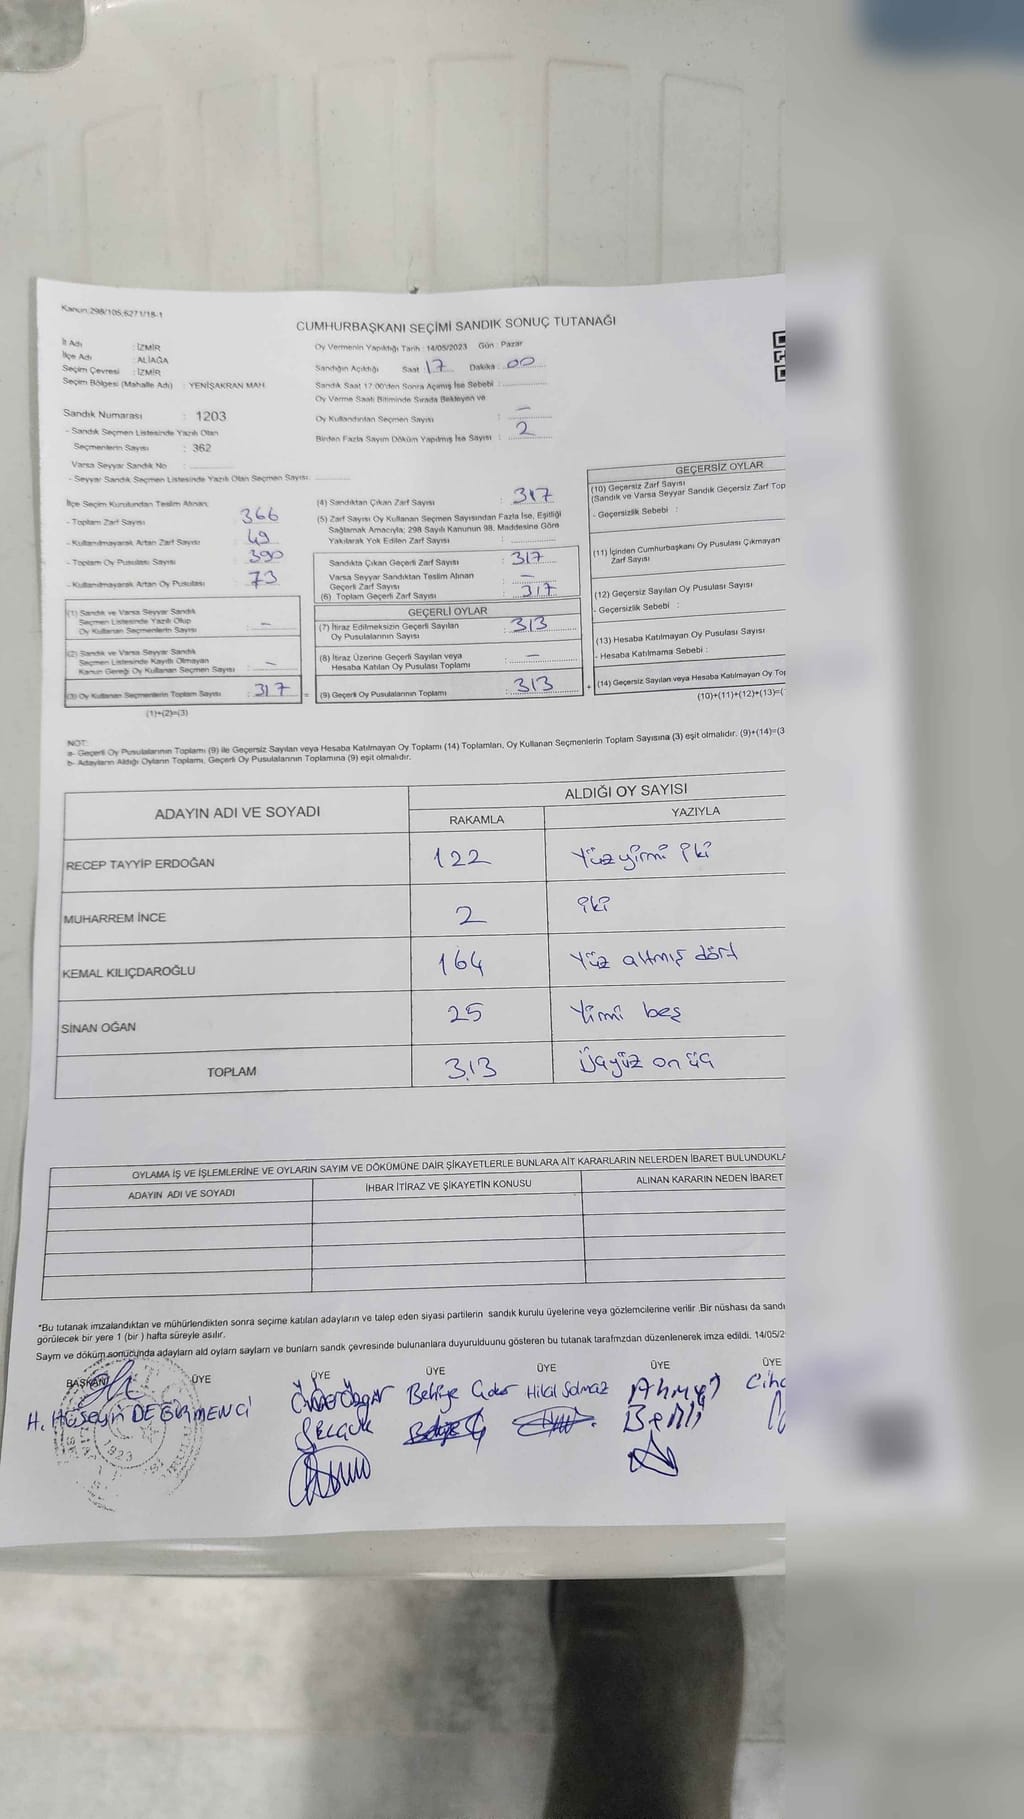 Kanun:298/105;6271/18-1
CUMHURBAŞKANI SEÇİMİ SANDIK SONUÇ TUTANAĞI
İl Adı : İZMİR
İlçe Adı : ALİAĞA
Seçim Çevresi : İZMİR
Seçim Bölgesi (Mahalle Adı) : YENİŞAKRAN MAH.
Sandık Numarası : 1203
- Sandık Seçmen Listesinde Yazılı Olan
Seçmenlerin Sayısı : 362
Varsa Seyyar Sandık No :
- Seyyar Sandık Seçmen Listesinde Yazılı Olan Seçmen Sayısı:
Oy Vermenin Yapıldığı Tarih : 14/05/2023 Gün : Pazar
Sandığın Açıldığı Saat 17 Dakika : 00
Sandık Saat 17:00'den Sonra Açılmış İse Sebebi :
Oy Verme Saati Bitiminde Sırada Bekleyen ve
Oy Kullandırılan Seçmen Sayısı : -
Birden Fazla Sayım Döküm Yapılmış İse Sayısı : 2
İlçe Seçim Kurulundan Teslim Alınan;
- Toplam Zarf Sayısı 366
- Kullanılmayarak Artan Zarf Sayısı 49
- Toplam Oy Pusulası Sayısı 390
- Kullanılmayarak Artan Oy Pusulası 73
(1) Sandık ve Varsa Seyyar Sandık
Seçmen Listesinde Yazılı Olup
Oy Kullanan Seçmenlerin Sayısı : -
(2) Sandık ve Varsa Seyyar Sandık
Seçmen Listesinde Kayıtlı Olmayan
Kanun Gereği Oy Kullanan Seçmen Sayısı : -
(3) Oy Kullanan Seçmenlerin Toplam Sayısı : 317
(1)+(2)=(3)
(4) Sandıktan Çıkan Zarf Sayısı : 317
(5) Zarf Sayısı Oy Kullanan Seçmen Sayısından Fazla İse, Eşitliği
Sağlamak Amacıyla; 298 Sayılı Kanunun 98. Maddesine Göre
Yakılarak Yok Edilen Zarf Sayısı :
Sandıkta Çıkan Geçerli Zarf Sayısı : 317
Varsa Seyyar Sandıktan Teslim Alınan
Geçerli Zarf Sayısı : -
(6) Toplam Geçerli Zarf Sayısı : 317
GEÇERLİ OYLAR
(7) İtiraz Edilmeksizin Geçerli Sayılan
Oy Pusulalarının Sayısı : 313
(8) İtiraz Üzerine Geçerli Sayılan veya
Hesaba Katılan Oy Pusulası Toplamı : -
= (9) Geçerli Oy Pusulalarının Toplamı : 313 +
GEÇERSİZ OYLAR
(10) Geçersiz Zarf Sayısı
(Sandık ve Varsa Seyyar Sandık Geçersiz Zarf Top
- Geçersizlik Sebebi :
(11) İçinden Cumhurbaşkanı Oy Pusulası Çıkmayan
Zarf Sayısı
(12) Geçersiz Sayılan Oy Pusulası Sayısı
- Geçersizlik Sebebi :
(13) Hesaba Katılmayan Oy Pusulası Sayısı
- Hesaba Katılmama Sebebi :
(14) Geçersiz Sayılan veya Hesaba Katılmayan Oy Top
(10)+(11)+(12)+(13)=(
NOT:
a- Geçerli Oy Pusulalarının Toplamı (9) ile Geçersiz Sayılan veya Hesaba Katılmayan Oy Toplamı (14) Toplamları, Oy Kullanan Seçmenlerin Toplam Sayısına (3) eşit olmalıdır. (9)+(14)=(3
b- Adayların Aldığı Oyların Toplamı, Geçerli Oy Pusulalarının Toplamına (9) eşit olmalıdır.
ADAYIN ADI VE SOYADI
ALDIĞI OY SAYISI
RAKAMLA YAZIYLA
RECEP TAYYİP ERDOĞAN 122 Yüzyirmi iki
MUHARREM İNCE 2 iki
KEMAL KILIÇDAROĞLU 164 Yüz altmış dört
SİNAN OĞAN 25 Yirmi beş
TOPLAM 313 Üçyüz on üç
OYLAMA İŞ VE İŞLEMLERİNE VE OYLARIN SAYIM VE DÖKÜMÜNE DAİR ŞİKAYETLERLE BUNLARA AİT KARARLARIN NELERDEN İBARET BULUNDUKLA
ADAYIN ADI VE SOYADI İHBAR İTİRAZ VE ŞİKAYETİN KONUSU ALINAN KARARIN NEDEN İBARET
*Bu tutanak imzalandıktan ve mühürlendikten sonra seçime katılan adayların ve talep eden siyasi partilerin sandık kurulu üyelerine veya gözlemcilerine verilir .Bir nüshası da sandı
görülecek bir yere 1 (bir ) hafta süreyle asılır.
Sayım ve döküm sonucunda adayların ald oyların sayların ve bunların sandk çevresinde bulunanlara duyurulduunu gösteren bu tutanak tarafmzdan düzenlenerek imza edildi. 14/05/2
BAŞKAN ÜYE ÜYE ÜYE ÜYE ÜYE ÜYE
H. Hüseyin DEĞİRMENCİ
Selçuk
Behiye
Hilal Solmaz
Ahmet
1923